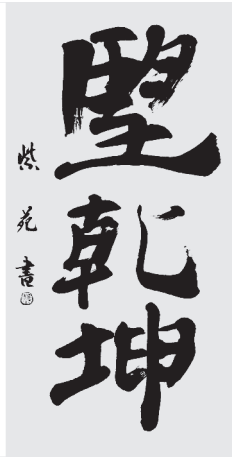 乾坤
紫苑書